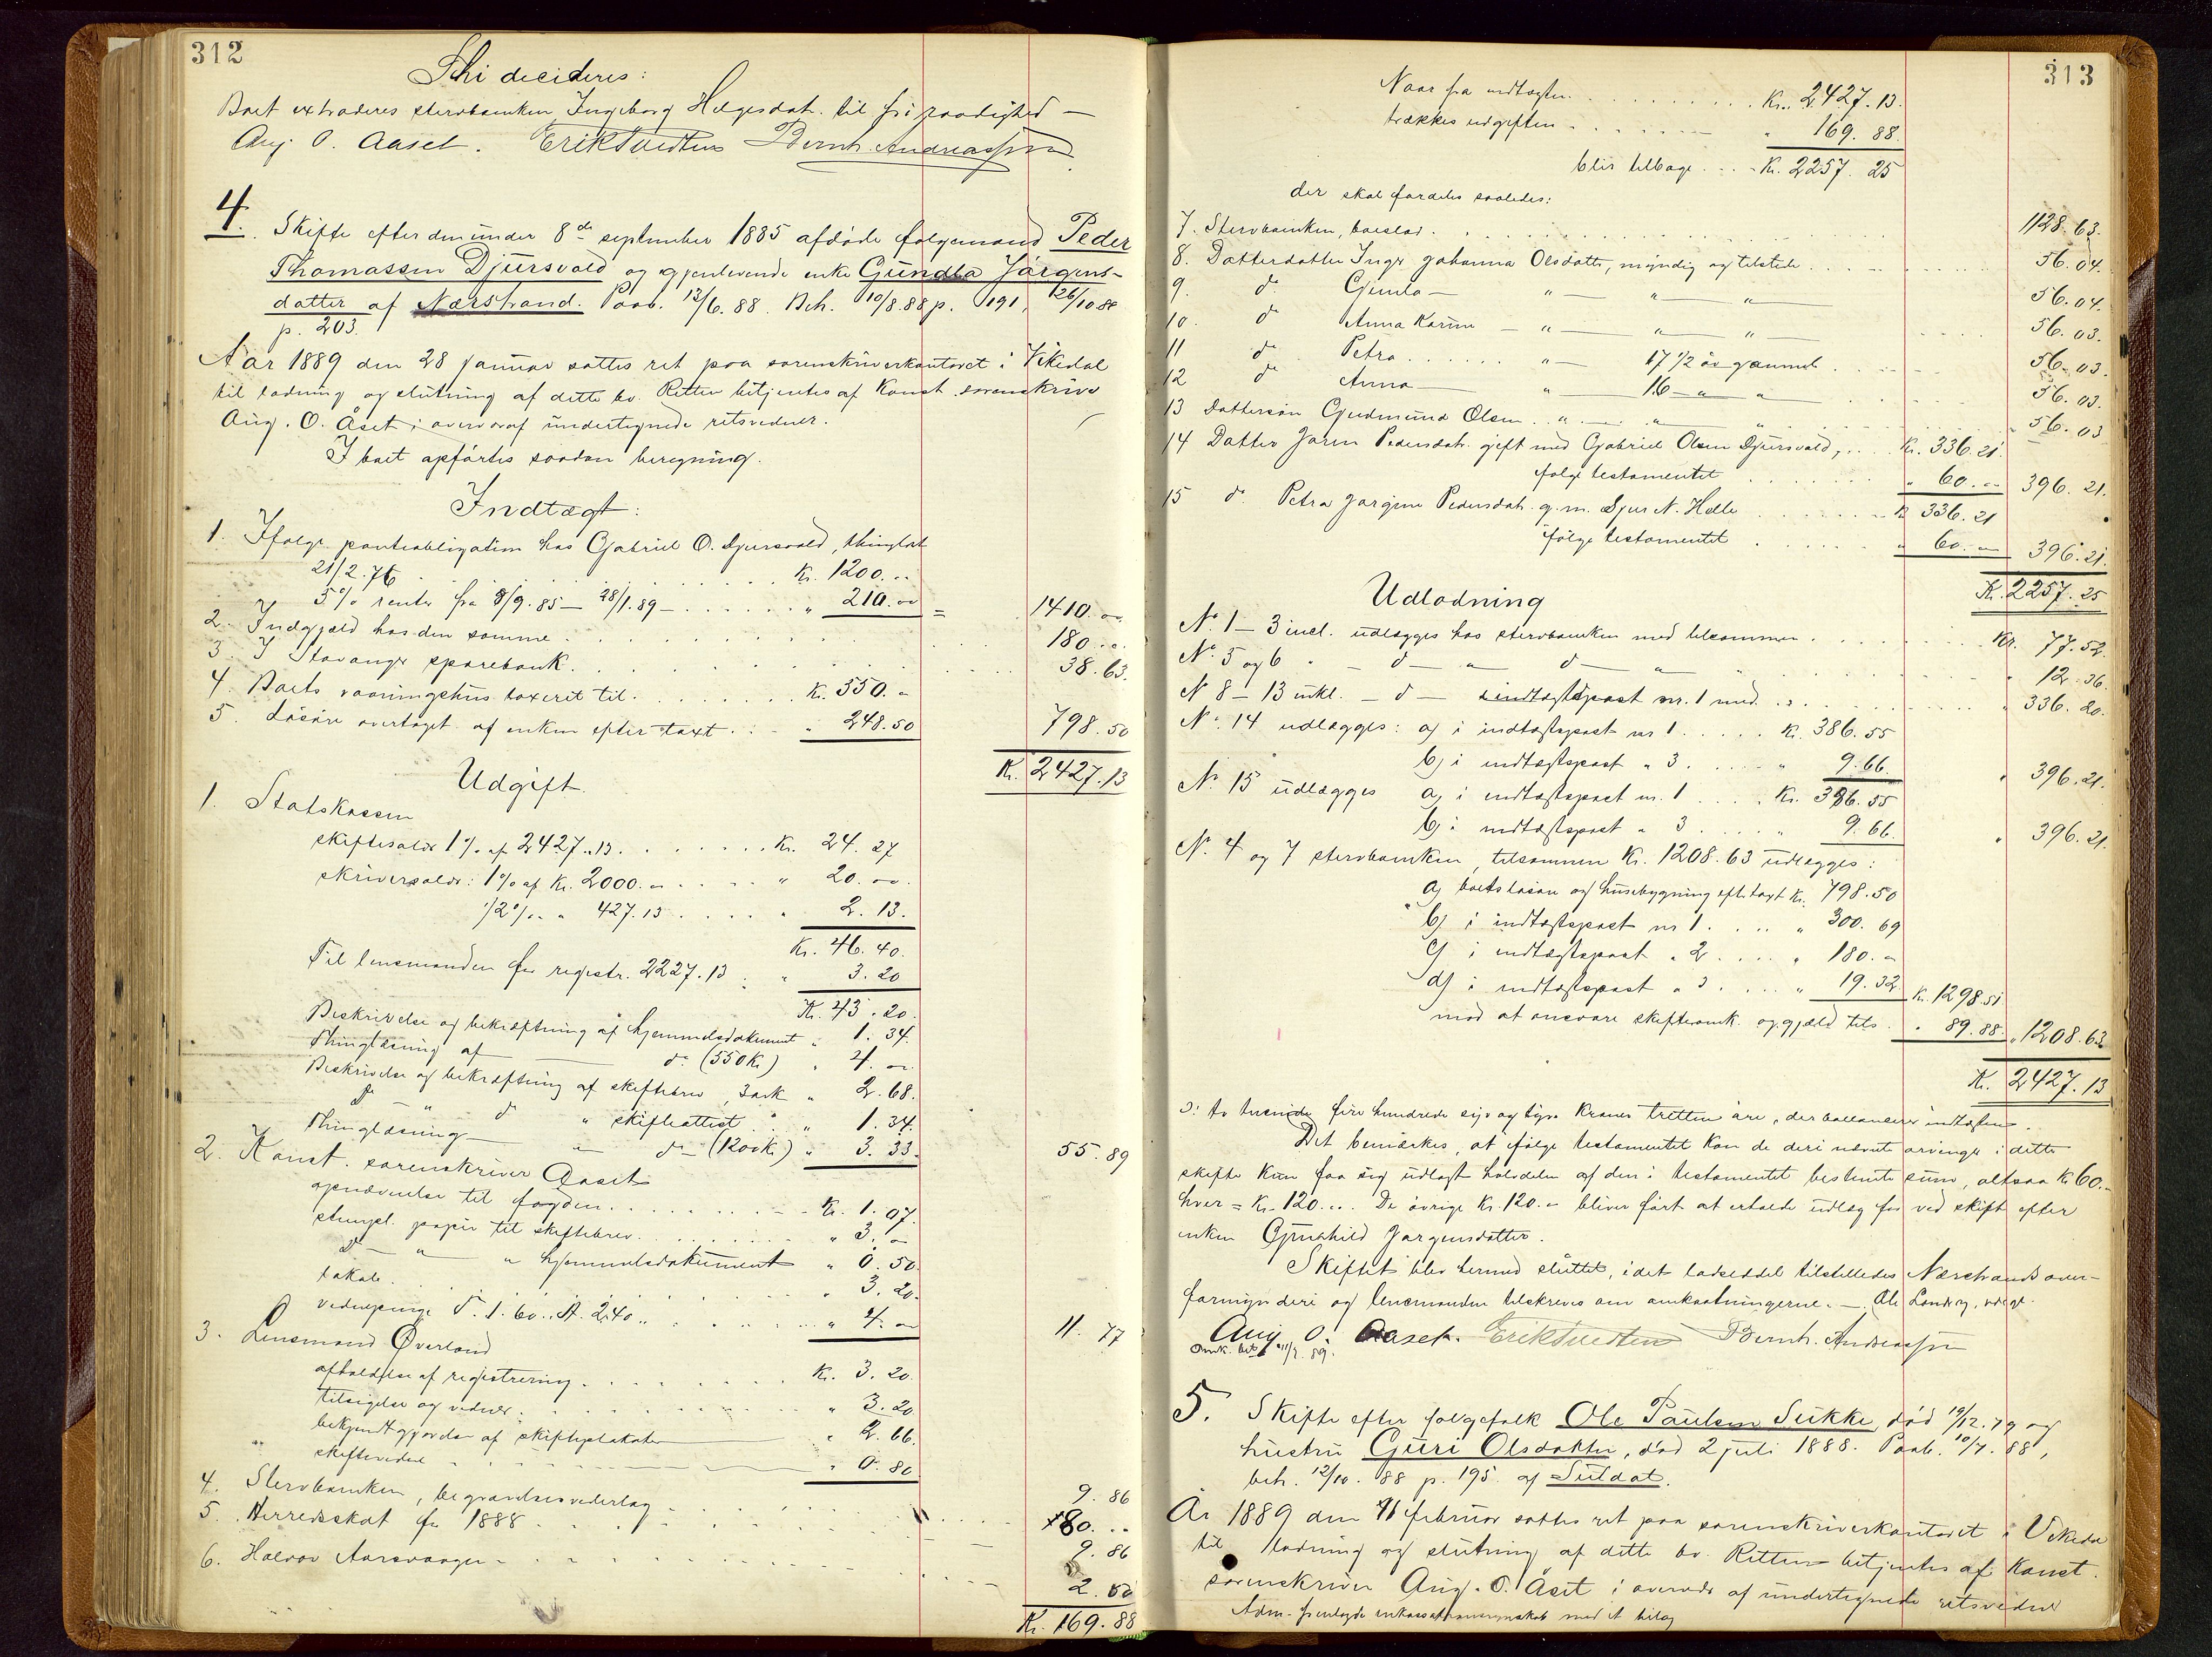 312
Thi decideres:
Boet extraderes stervboenken Ingeborg Helgesdat. til fri raadighed —
Aug. O. Aaset. Erik Tuedten Bernh. Andreassen
4. Skifte efter den under 8de september 1885 afdøde folgemand Peder
Thomassen Djursvold og gjenlevende enke Gundla Jørgens-
datter af Nærstrand. Paab. 12/6.88. Beh. 10/8.88 p. 191, 26/10 88
p. 203.
Aar 1889 den 28 januar sattes ret paa sorenskriverkontoret i Vikedal
til lodning og slutning af dette bo. Retten betjentes af Konst. sorenskriver
Aug. O. Åset i overvær af undertegnede retsvidner.
I boet opførtes saadan beregning.
Indtægt:
1. Ifølge panteobligation hos Gabriel O. Djursvold, thinglæst
21/2.76 . . . Kr. 1200. "
5% renter fra 8/9.85 — 28/1.89 — . . . " 210.00 = 1410.00
2. Indgjæld hos den samme . . . 180. "
3. I Stavanger sparebank . . . 38.63.
4. Boets vaaningshus taxeret til . . . Kr. 550. "
5. Løsøre overtaget af enken efter taxt . . . " 248.50 798.50
Kr. 2427.13
Udgift
1. Statskassen
skiftesalær 1% af 2427.13 . . . Kr. 24.27
skriversalær: 1% af Kr. 2000. " . . . " 20. "
1/2% " 427.13 . . . " 2.13.
Kr. 46.40.
Til lensmanden for registr. 2227.13 . " 3.20
Kr. 43.20.
Beskrivelse og bekræftning af hjemmelsdokument " 1.34.
Thinglæsning af — do (550 Kr) " 4. "
Beskrivelse og bekræftning af skiftebrev, 3 ark " 2.68.
do " do " skifteattest . " 1.34.
Thinglæsning — " do (1200 Kr.) " 3.33. 55.89
2. Konst. sorenskriver Aaset
opnævnelse til fogden . . . Kr. 1.07.
stempl. papir til skiftebrev . . . " 3. "
do — " — " hjemmelsdokument " 0.50
lokale . . . " 3.20.
vidnepenge T. 1.60. A. 2.40 " . . . " 4. " 11.77
3. Lensmand Øverland
afholdelse af registrering . . . Kr. 3.20.
tilsigelse og vidner . . . " 3.20
bekjentgjørelse af skifteplakater " 2.66.
skiftevidne . . . " 0.80 9.86
4. Stervboenken, begravelsesvederlag . . . 80. "
5. Herredsskat for 1888 . . . 9.86
6. Halvor Aarsvaager . . . 2.50
Kr. 169.88
313
Naar fra indtægten . . . Kr. 2427.13.
trækkes udgiften . . . " 169.88.
blir tilbage . . . Kr. 2257.25
der skal fordeles saaledes:
7. Stervboenken, boeslod . . . 1128.63.
8. Datterdatter Inger Johanna Olsdatter, myndig og tilstede . . . 56.04.
9. do Gunla — " — " — " 56.04.
10. do Anna Karine — " — " — " 56.03.
11 do Petra . . . " — 17 1/2 år gammel . . . 56.03.
12 do Anna — " 16 — " " 56.03.
13 Dattersøn Gudmund Olsen . . " — " " 56.03
14 Datter Joren Pedersdat. gift med Gabriel Olsen Djursvold, . . Kr. 336.21.
følge testamentet . . . " 60. " 396.21.
15 do Petra Jørgine Pedersdat. g. m. Sjur N. Helle . . . Kr 336.21
følge testamentet . . . " 60. " 396.21.
Kr. 2257.25
Udlodning
No. 1 — 3 incl. udlægges hos stervboenken med tilsammen . . . Kr. 77.52.
No. 5 og 6 " — do — " — do — " . . . " 12.36.
N 8 — 13 inkl. — do — i indtægtspost nr. 1 med . . . " 336.20.
No. 14 udlægges: a) i indtægtspost nr 1 . . . Kr. 386.55
b) i indtægtspost " 3 . . . " 9.66. " 396.21.
No. 15 udlægges a) i indtægtspost nr. 1 . . . Kr. 386.55
b) i indtægtspost " 3 . . . " 9.66. " 396.21.
No. 4 og 7 stervboenken, tilsammen Kr. 1208.63 udlægges:
a) boets løsøre og husebygning eft. taxt Kr. 798.50
b) i indtægtspost nr 1 . . . " 300.69
c) i indtægtspost " 2 . . . " 180. "
d) i indtægtspost " 3 . . . " 19.32 Kr. 1298.51
mod at ansvare skifteomk. og gjæld tils. " 89.88. " 1208.63
Kr. 2427.13
ɔ: to tusinde fire hundrede syv og tyve Kroner tretten øre, der ballancerer indtægten.
Det bemærkes, at følge testamentet kan de deri nævnte arvinger i dette
skifte kun faa sig udlagt halvdelen af den i testamentet bestemte sum, altsaa Kr 60. "
hver = Kr. 120. ". De øvrige Kr. 120. " bliver ført at erholde udlæg for ved skifte efter
enken Gunhild Jørgensdatter.
Skiftet blev hermed sluttet, idet lodseddel tilstilledes Nærstrands over-
formynderi og lensmanden tilskreves om omkostningerne. — Ole Landråg, udlagt.
Aug. O. Aaset. Erik Tuedten Bernh. Andreassen
Omk. bet. 11/2.89.
5. Skifte efter folgefolk Ole Paulsen Sukke, død 19/12.79 og
hustru Guri Olsdatter, død 2 juli 1888. Paab. 10/7.88,
beh. 12/10.88 p. 195. af Suldal.
År 1889 den 11 februar sattes ret paa sorenskriverkontoret i Vikedal
til lodning og slutning af dette bo. Retten betjentes af Konst.
sorenskriver Aug. O. Åset i overvær af undertegnede retsvidner
Adm. fremlagde inkassationsregnskab med et bilag